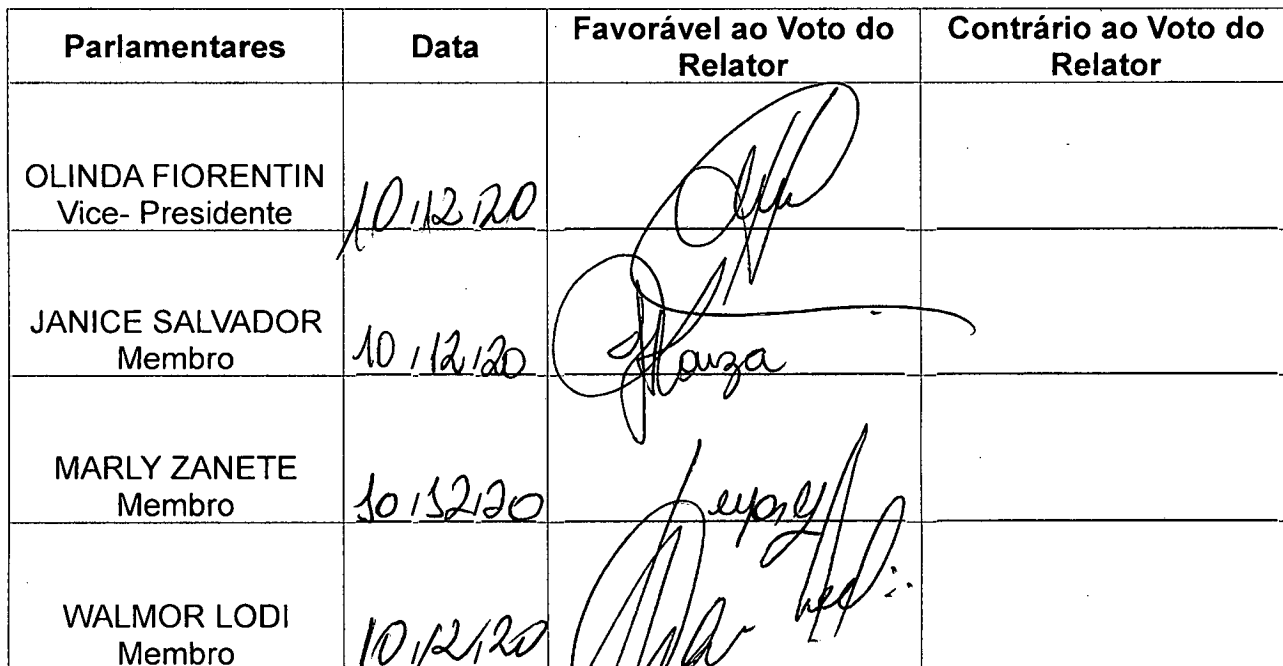 Parlamentares Data Favorável ao Voto do Relator Contrário ao Voto do Relator
OLINDA FIORENTIN
Vice- Presidente 10/12/20
JANICE SALVADOR
Membro 10/12/20
MARLY ZANETE
Membro 10/12/20
WALMOR LODI
Membro 10/12/20